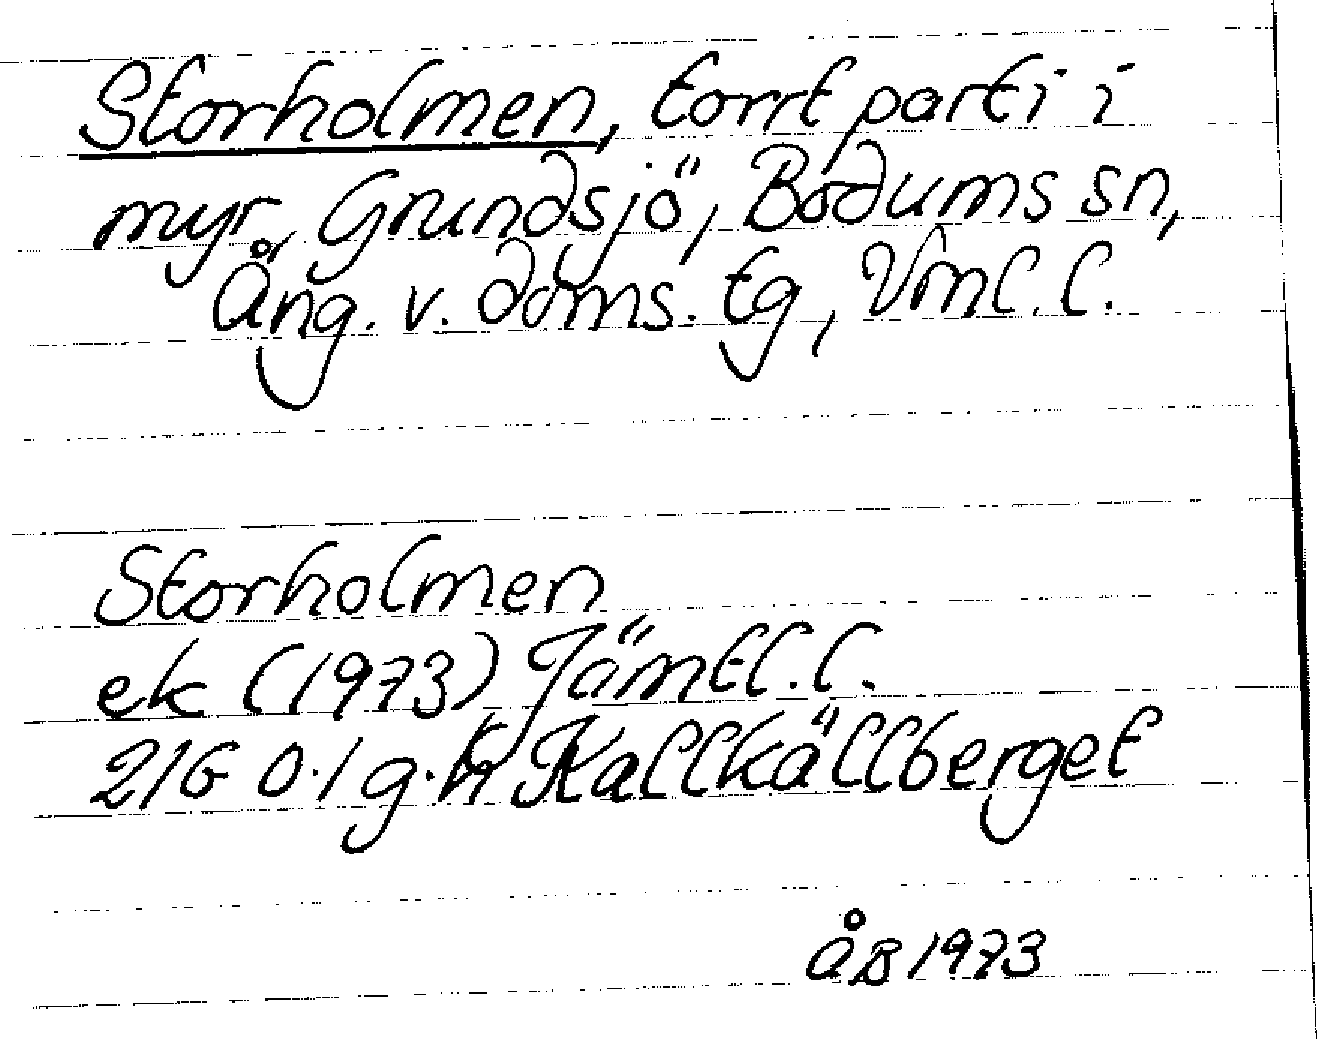 Storholmen, torrt parti i
myr, Grundsjö, Bodums sn,
Ång. v. doms. tg, Vnl. l.
Storholmen
ek (1973) Jämtl. l.
21G 0-1 g-h Kallkällberget
åB 1973